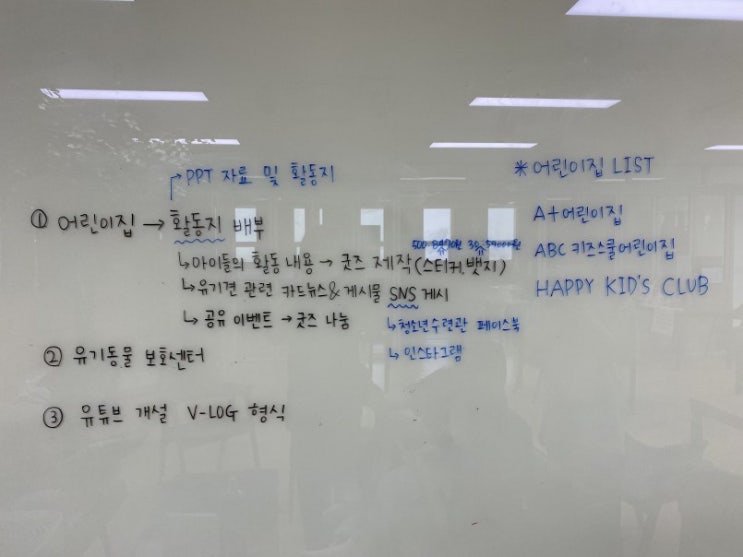 PPT 자료 및 활동지
① 어린이집 → 활동지 배부
↳아이들의 활동 내용 → 굿즈 제작(스티커,뱃지)
↳유기견 관련 카드뉴스&게시물 SNS 게시
↳ 공유 이벤트 →굿즈 나눔
↳청소년수련관 페이스북
↳인스타그램
② 유기동물 보호센터
③ 유튜브 개설 V-LOG 형식
* 어린이집 LIST
A+어린이집
ABC 키즈스쿨어린이집
HAPPY KID'S CLUB